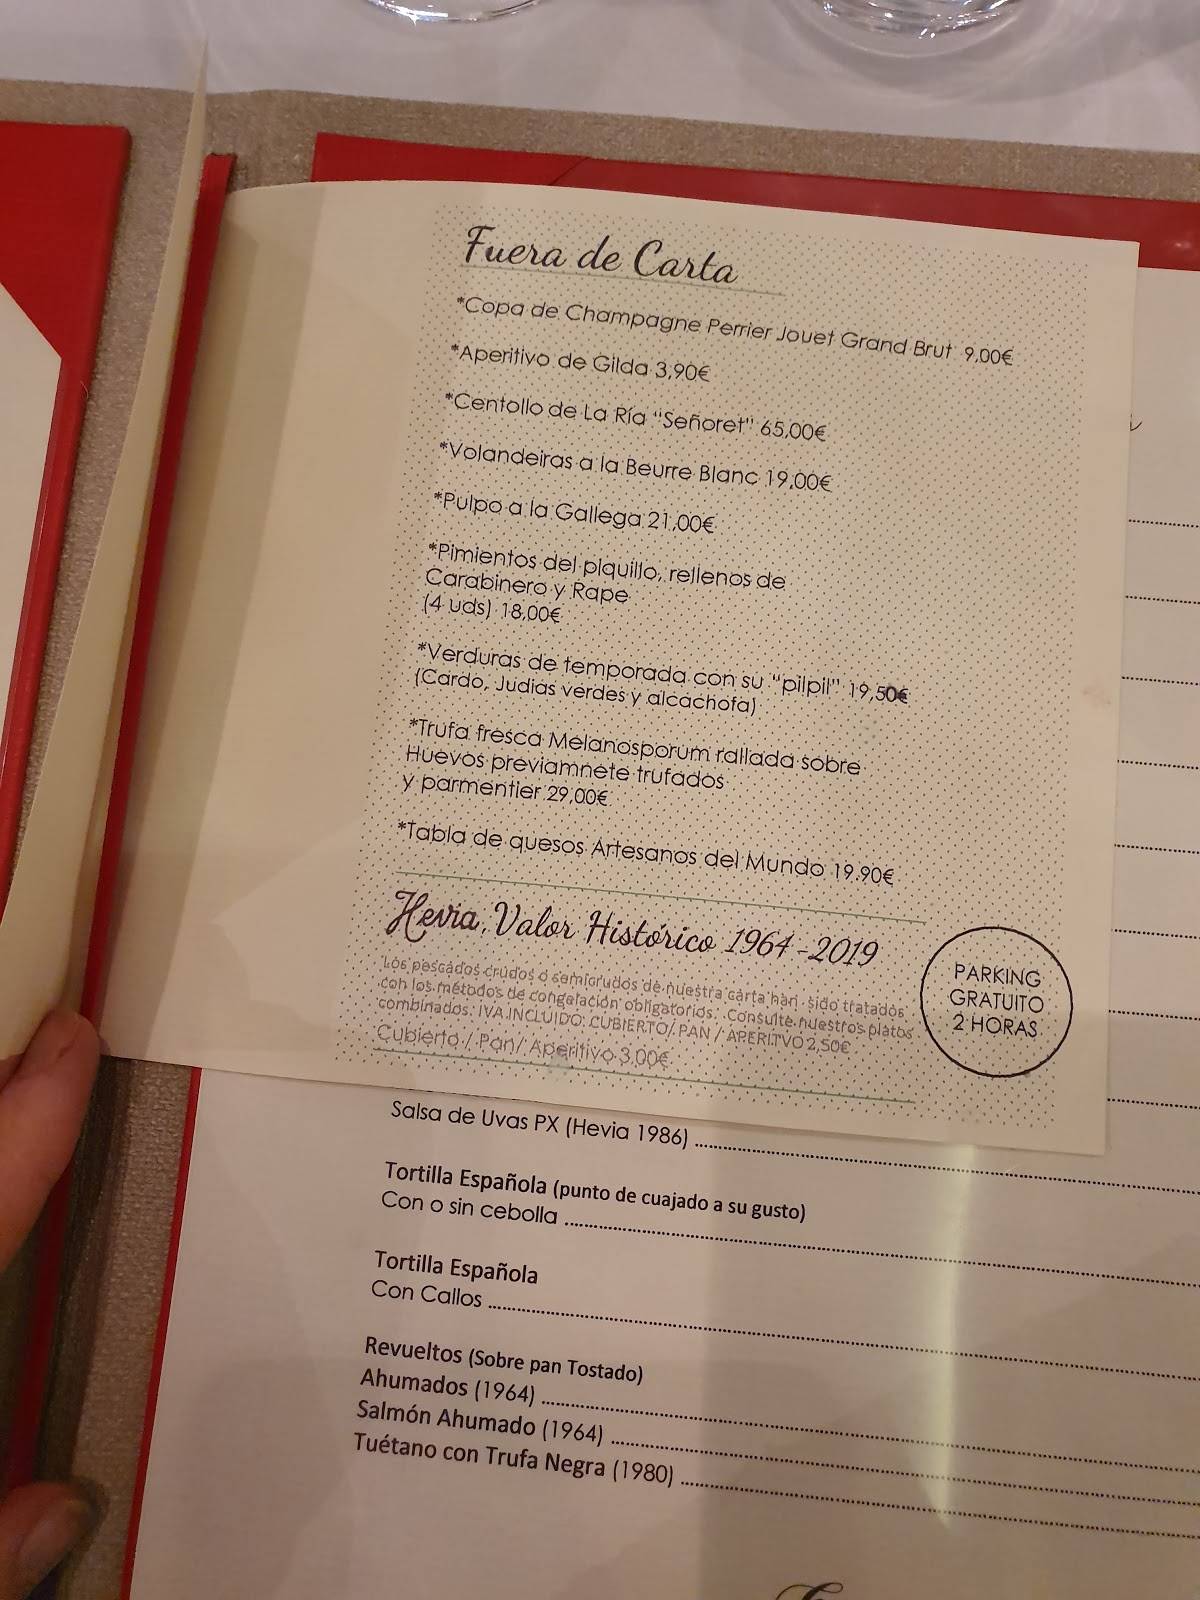 Fuera de Carta
*Copa de Champagne Perrier Jouet Grand Brut 9,00€
*Aperitivo de Gilda 3,90€
*Centollo de La Ría "Señoret" 65,00€
*Volandeiras a la Beurre Blanc 19,00€
*Pulpo a la Gallega 21,00€
*Pimientos del piquillo, rellenos de
Carabinero y Rape
(4 uds) 18,00€
*Verduras de temporada con su "pilpil" 19,50€
(Cardo, Judias verdes y alcachofa)
*Trufa fresca Melanosporum rallada sobre
Huevos previamnete trufados
y parmentier 29,00€
*Tabla de quesos Artesanos del Mundo 19.90€
Hevia, Valor Histórico 1964-2019
Los pescados crudos o semicrudos de nuestra carta han sido tratados
con los métodos de congelación obligatorios. Consulte nuestros platos
combinados. IVA INCLUIDO. CUBIERTO/ PAN / APERITVO 2,50€
Cubierto / Pan/ Aperitivo 3,00€
PARKING
GRATUITO
2 HORAS
Salsa de Uvas PX (Hevia 1986)
Tortilla Española (punto de cuajado a su gusto)
Con o sin cebolla
Tortilla Española
Con Callos
Revueltos (Sobre pan Tostado)
Ahumados (1964)
Salmón Ahumado (1964)
Tuétano con Trufa Negra (1980)